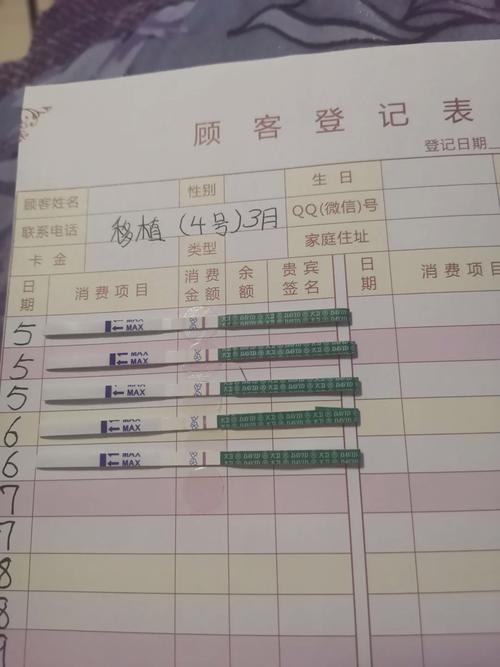 顾客登记表
登记日期
顾客姓名 性别 生日
联系电话 移植(4号)3月 QQ(微信)号
卡金 类型 家庭住址
日期 消费项目 消费金额 余额 贵宾签名 日期 消费项目
5 MAX
5 MAX
5 MAX
6 MAX
6 MAX
7
7
8
8
9